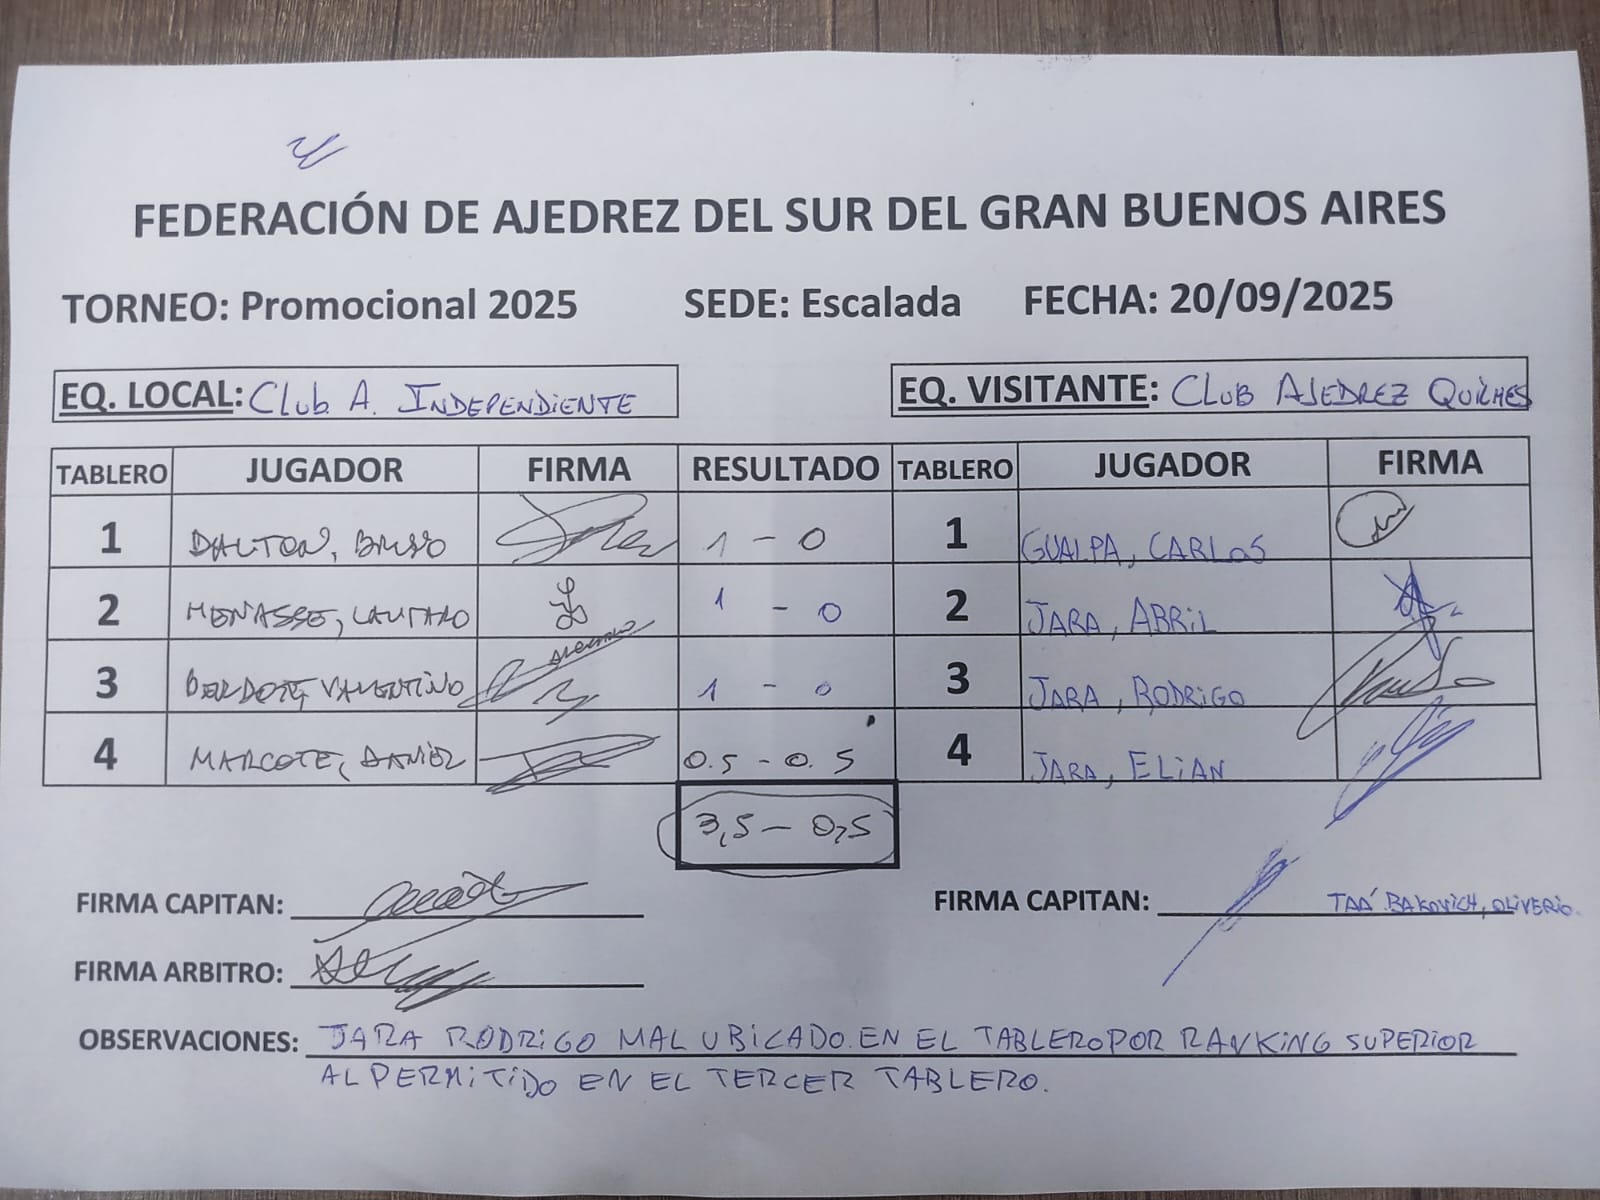 FEDERACIÓN DE AJEDREZ DEL SUR DEL GRAN BUENOS AIRES
TORNEO: Promocional 2025 SEDE: Escalada FECHA: 20/09/2025
EQ. LOCAL: Club A. INDEPENDIENTE EQ. VISITANTE: CLUB AJEDREZ QUILMES
TABLERO JUGADOR FIRMA RESULTADO TABLERO JUGADOR FIRMA
1 DALTON, 1 - 0 1 GUALPA, CARLOS
2 MENASSE, LAUTARO 1 - 0 2 JARA, ABRIL
3 VALENTINO 1 - 0 3 JARA, RODRIGO
4 MARCOTE, DANIEL 0.5 - 0.5 4 JARA, ELIAN
3,5 - 0,5
FIRMA CAPITAN: FIRMA CAPITAN: TAÁ BAKOVICH, OLIVERIO.
FIRMA ARBITRO:
OBSERVACIONES: JARA RODRIGO MAL UBICADO EN EL TABLERO POR RANKING SUPERIOR
AL PERMITIDO EN EL TERCER TABLERO.